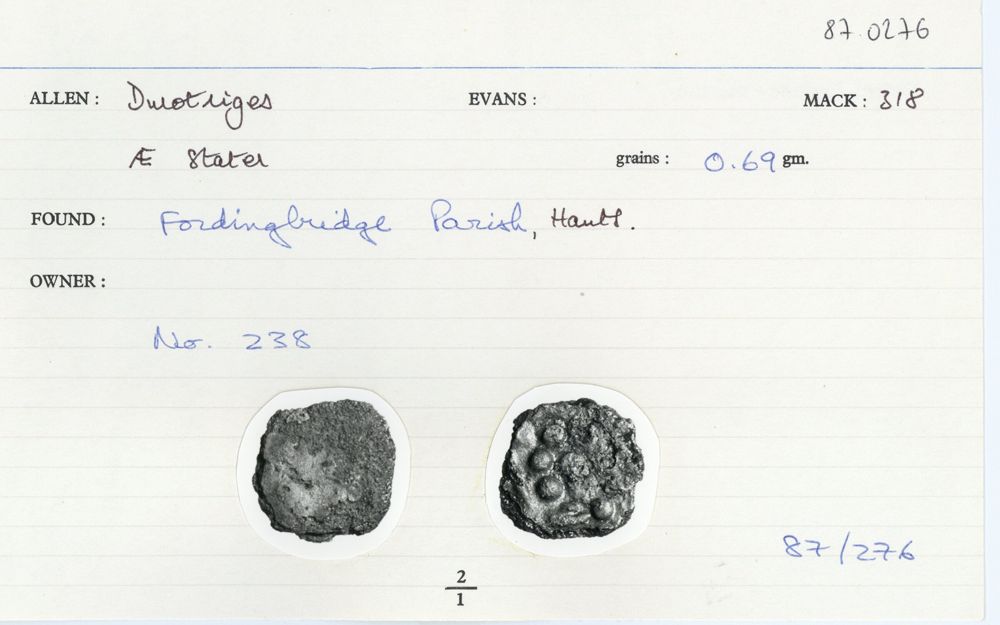 87.0276
ALLEN: Durotriges EVANS: MACK: 318
Æ Stater grains: 0.69 gm.
FOUND: Fordingbridge Parish, Hants.
OWNER:
No. 238
87/276
2
1